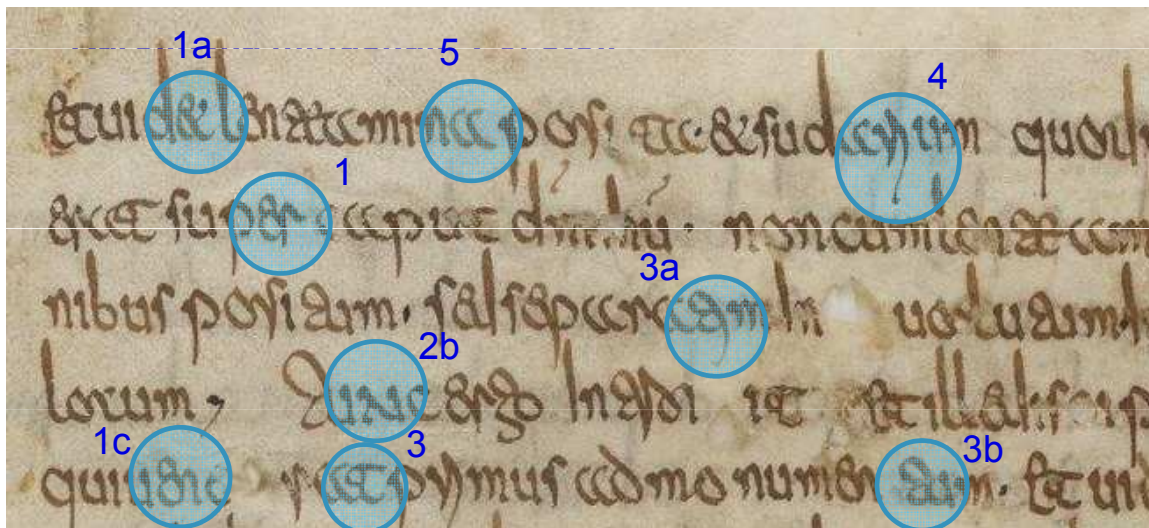 1a 5 4
Et uidet lenteamina posita · et sudarium quod
1
erat super caput dni ihu · non cum lenteami
3a
nibus positum · sed separatim in uolutum ·
2b
Tunc ergo introi it et ille discip
1c 3 3b
qui primus ad monumentum · Et uid